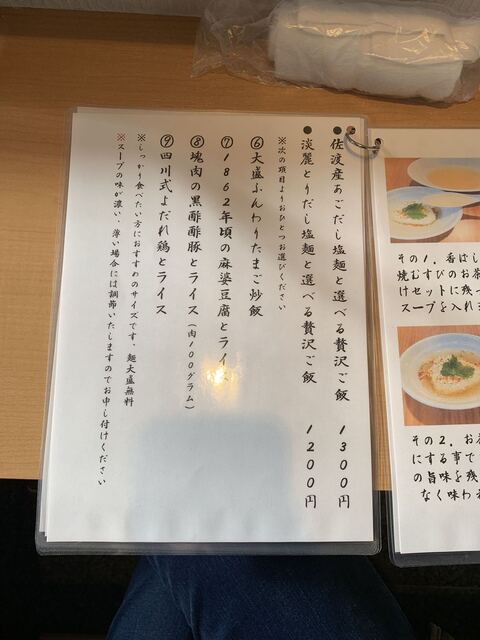 ●佐渡産あごだし塩麺と選べる贅沢ご飯 1300円
●淡麗とりだし塩麺と選べる贅沢ご飯 1200円
※次の項目よりおひとつお選びください
⑥大盛ふんわりたまご炒飯
⑦1862年頃の麻婆豆腐とライス
⑧塊肉の黒酢酢豚とライス(肉100グラム)
⑨四川式よだれ鶏とライス
※しっかり食べたい方におすすめのサイズです。麺大盛無料
※スープの味が濃い、薄い場合には調節いたしますのでお申し付けください
その1. 香ばし
焼むすびのお茶
けセットに残っ
スープを入れ
その2. お
にする事で
の旨味を残
なく味わ